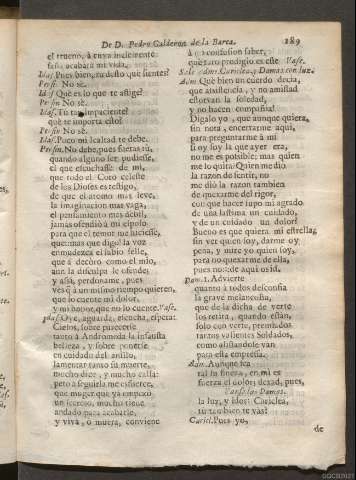 De D. Pedro Calderon de la Barca. 189
el trueno, à cuya
seña acabarà mi vida.
Idas. Pues bien, tu desto què sientes?
Persin. No sè.
Idas. Què es lo que te aflige?
Persin. No sè.
Idas. Tu tan impaciente!
què te importa esto?
Persin. No sè.
Idas. Poco mi lealtad te debe.
Persin. No debe, pues fueras tu,
quando alguno ser pudiesse,
el que escuchasse de mi,
que todo el Coro celeste
de los Dioses es testigo,
de que el atomo mas leve,
la imaginacion mas vaga,
el pensamiento mas debil,
jamàs ofendiò à mi esposo
para que el temor me hiciesse,
que mas que digo! la voz
enmudezca el labio selle,
que à decoro como el mio,
aun la disculpa le ofende;
y assi, perdoname, pues
vès q à un mismo tiempo quieren,
que lo cuente mi dolor,
y mi honor que no lo cuente. Vase.
Idas. Oye, aguarda, escucha, espera:
Cielos, sobre parecerle
tanto à Andromeda la infausta
belleza, y sobre ponerse
en cuidado del anillo,
lamentar tanto su muerte,
mucho dice, y mucho calla:
peto à seguirla me esfuerce,
que muger que yà empezò
un secreto, mucho tiene
andado para acabarle,
y viva, ò muera, conviene
à mi confusion saber,
què raro prodigio es este Vase.
Sale Adm. Cariclea, y Damas con luz.
Adm. Què bien un cuerdo decia,
que assistencia, y no amistad
estorvan la soledad,
y no hacen compañia!
Digalo yo, que aunque quiera,
sin nota, encerrarme aqui,
para preguntarme à mi
si soy la que ayer era,
no me es possible; mas quien
me lo quita? Quien me diò
la razon de sentir, no
me diò la razon tambien
de quexarme del rigor,
con que hacer supo mi agrado
de una lastima un cuidado,
y de un cuidado un dolor?
Bueno es que quiera mi estrella,
sin ver quien soy, darme oy
pena, y mire yo quien soy,
para no quexarme de ella,
pues no: de aqui os id.
Dam. 1. Advierte
quanto à todos desconsuela
la grave melancolia,
que de la dicha de verte
los retira, quando están,
solo con verte, premiados
tantos valientes Soldados,
como alistandole van
para esta empressa.
Adm. Aunque sea
tal su fineza, en mi es
fuerza el dolor: dexad, pues,
Vanse las Damas.
la luz, y idos: Cariclea,
tu tambien te vas?
Caricl. Pues yo,
de